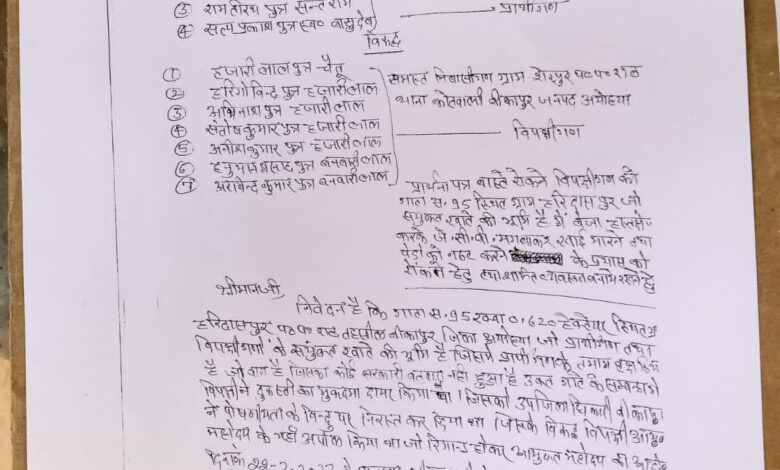 ③ राम तीरथ पुत्र सन्त राम
④ सत्य प्रकाश पुत्र स्व० वासुदेव
प्रार्थीगण
विरुद्ध
① हजारी लाल पुत्र चैतू
② हरिगोविन्द पुत्र हजारीलाल
③ अविनाश पुत्र हजारी लाल
④ संतोष कुमार पुत्र हजारी लाल
⑤ अनीश कुमार पुत्र हजारी लाल
⑥ हनुमान प्रसाद पुत्र बनवारी लाल
⑦ अरविन्द कुमार पुत्र बनवारी लाल
समस्त निवासीगण ग्राम शेरपुर प०प० राठ
थाना कोतवाली बीकापुर जनपद अयोध्या
विपक्षीगण
प्रार्थना पत्र वास्ते रोकने विपक्षीगण को
गाटा स. 95 स्थित ग्राम हरिदासपुर जो
संयुक्त खाते की भूमि है में बेजा हस्तक्षेप
करके जे.सी.बी. मंगवाकर खाई मारने तथा
पेड़ो को नष्ट करने के प्रयास को
रोकने हेतु तथा शान्ति व्यवस्था बनाये रखने हेतु
श्रीमानजी
निवेदन है कि गाटा स. 95 रकबा 0.620 हेक्टेयर स्थित ग्राम
हरिदासपुर प०प० राठ तहसील बीकापुर जिला अयोध्या जो प्रार्थीगण तथा
विपक्षीगणों के संयुक्त खाते की भूमि है जिसमें प्रार्थीगण के तमाम वृक्ष
है जो बाग है जिसका कोई सरकारी बंटवारा नही हुआ है उक्त गाटे के सम्बन्ध में
विपक्षी ने दुरुस्ती का मुकदमा दायर किया था। जिसको उपजिलाधिकारी बीकापुर
ने पोषणीयता के बिन्दु पर निरस्त कर दिया था जिसके विरुद्ध विपक्षी आयुक्त
महोदय के यहाँ अपील किया था जो रिमाण्ड होकर आयुक्त महोदय के आदेश
दिनांक 22-2-2023